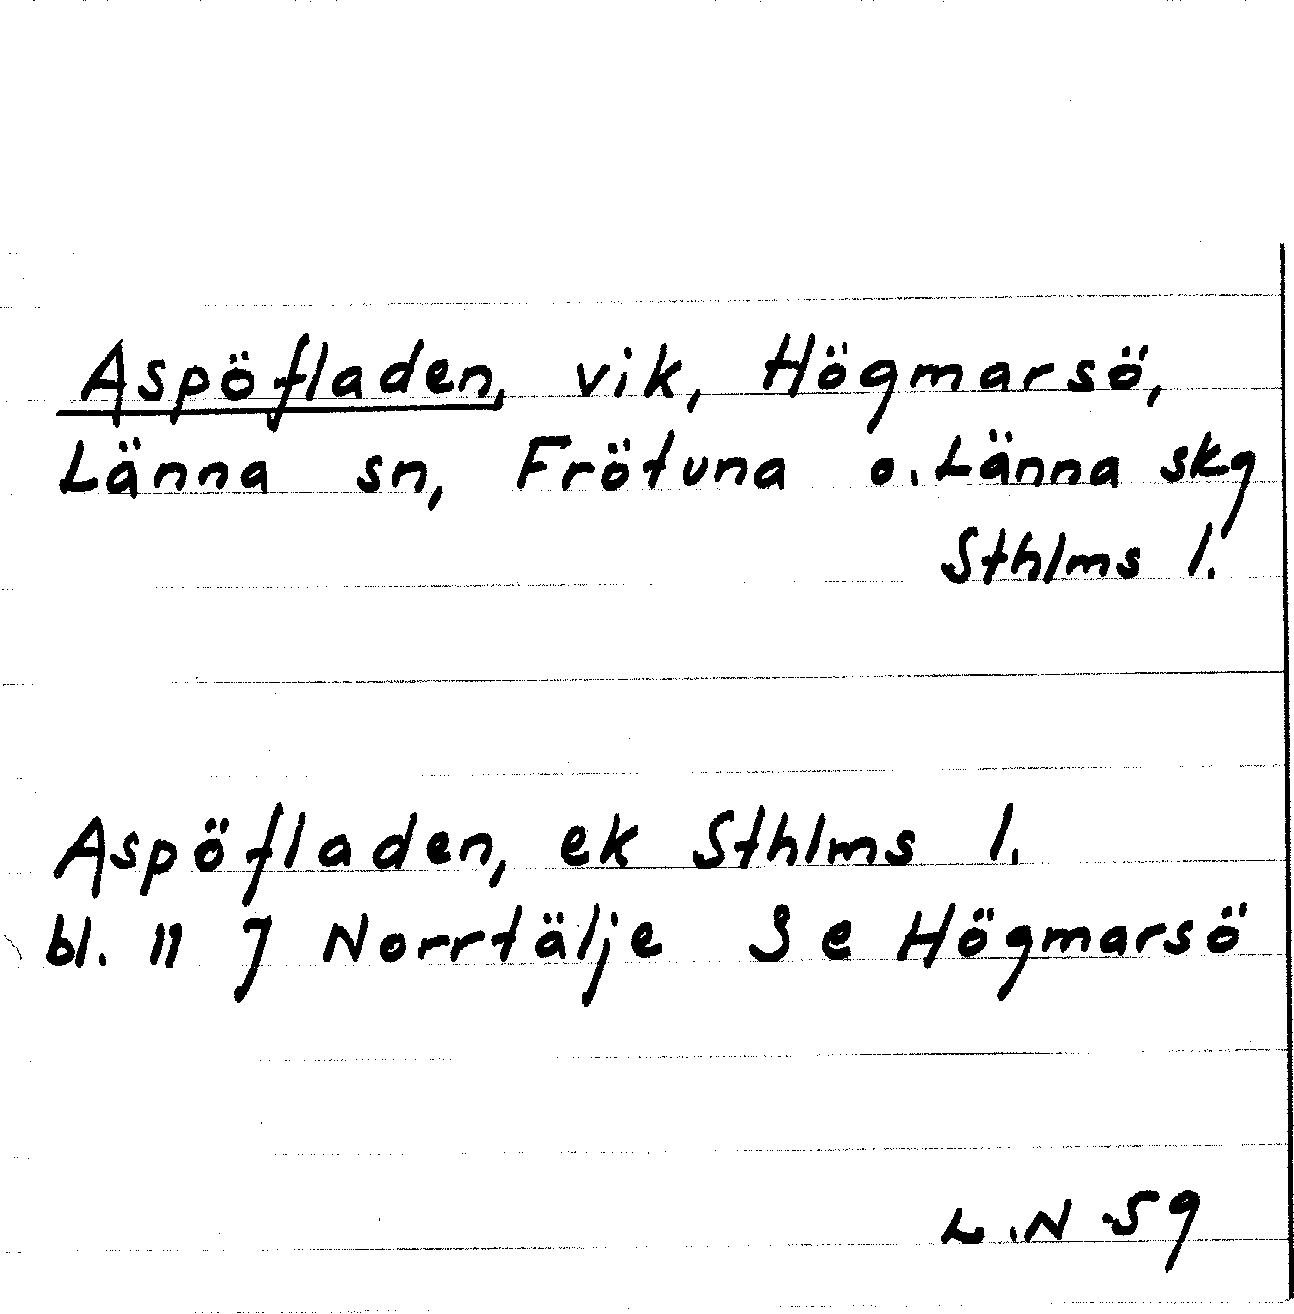 Aspöfladen, vik, Högmarsö,
Länna sn, Frötuna o. Länna skg
Sthlms l.
Aspöfladen, ek Sthlms l.
bl. 11 J Norrtälje S e Högmarsö
L.N 59